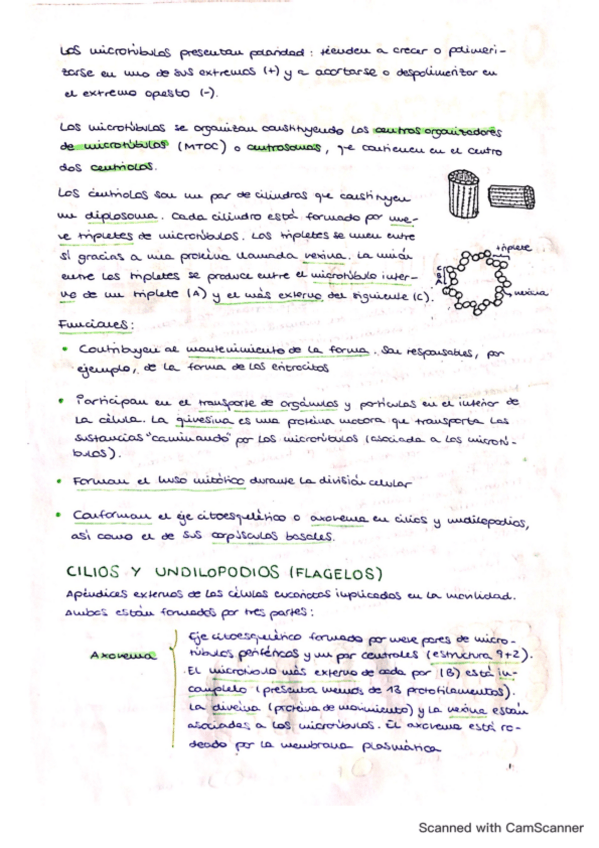 Los microtúbulos presentan polaridad: tienden a crecer o polimeri-
zarse en uno de sus extremos (+) y a acortarse o despolimerizar en
el extremo opuesto (-).
Los microtúbulos se organizan constituyendo los centros organizadores
de microtúbulos (MTOC) o centrosomas, que contienen en el centro
dos centriolos.
Los centriolos son un par de cilindros que constituyen
un diplosoma. Cada cilindro está formado por nue-
ve tripletes de microtúbulos. Los tripletes se unen entre
sí gracias a una proteína llamada nexina. La unión
entre los tripletes se produce entre el microtúbulo inter-
no de un triplete (A) y el más externo del siguiente (C).
triplete
C
B
A
nexina
Funciones:
• Contribuyen al mantenimiento de la forma. Son responsables, por
ejemplo, de la forma de los eritrocitos
• Participan en el transporte de orgánulos y partículas en el interior de
la célula. La quinesina es una proteína motora que transporta las
sustancias "caminando" por los microtúbulos (asociada a los microtú-
bulos).
• Forman el huso mitótico durante la división celular
• Conforman el eje citoesquelético o axonema en cilios y undilopodios,
así como el de sus corpúsculos basales.
CILIOS Y UNDILOPODIOS (FLAGELOS)
Apéndices externos de las células eucariotas implicados en la movilidad.
Ambos están formados por tres partes:
Axonema
Eje citoesquelético formado por nueve pares de micro-
túbulos periféricos y un par centrales (estructura 9+2).
El microtúbulo más externo de cada par (B) está in-
completo (presenta menos de 13 protofilamentos).
La dineína (proteína de movimiento) y la nexina están
asociadas a los microtúbulos. El axonema está ro-
deado por la membrana plasmática
Scanned with CamScanner